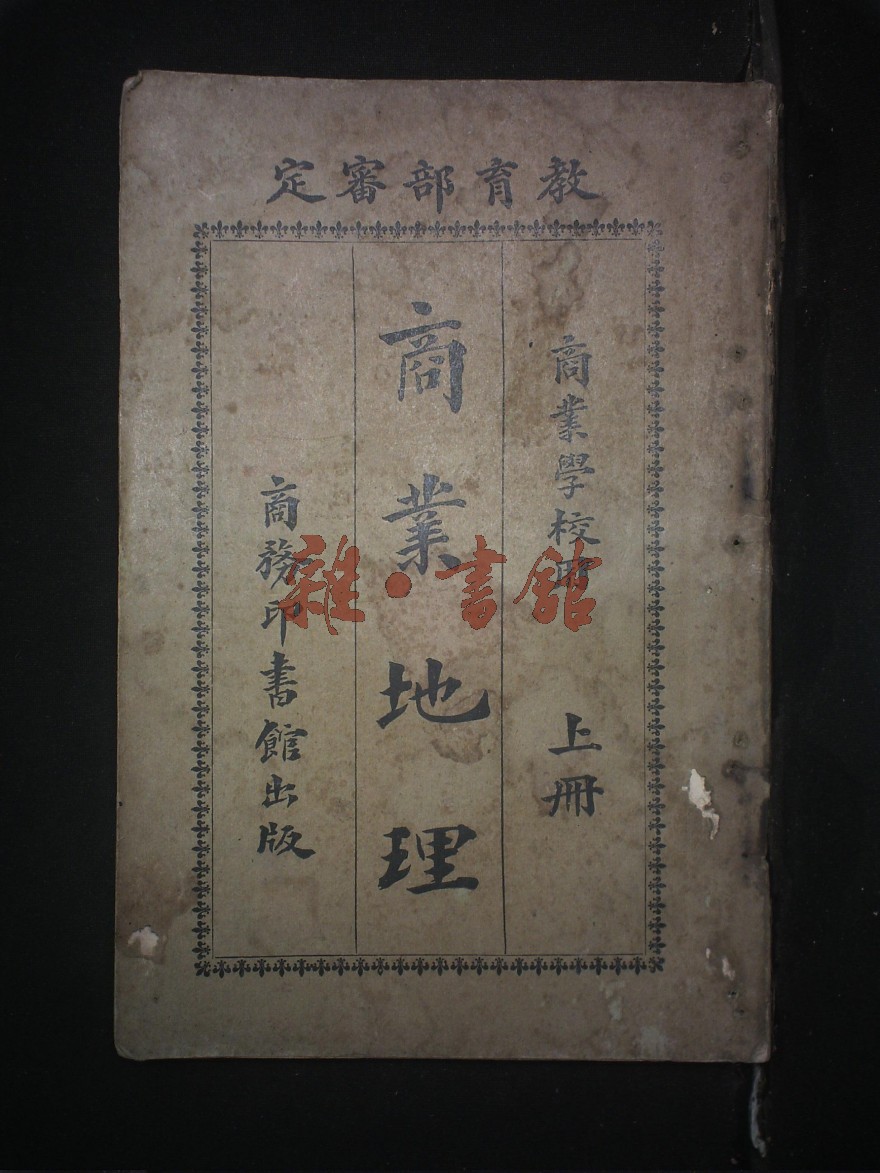 教育部審定
商業學校用 上冊
商業地理
商務印書館出版
雜·書館